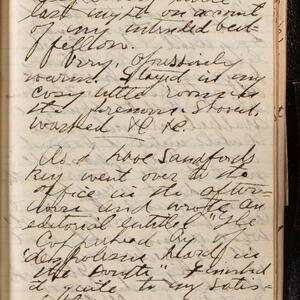 last night on account
of my intended bed-
fellow.
Very, oppressively
warm. Stayed in my
cosy little room in
the forenoon. Shaved,
washed &c &c.
As I have Sandfords
key went over to the
office in the after-
noon and wrote an
editorial entitled "The
Copperhead cry of
despotism heard in
the South" finished
it quite to my satis-